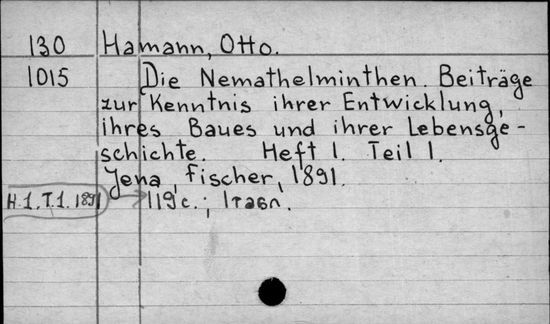 130 Hamann, Otto.
1015 Die Nemathelminthen. Beiträge
zur Kenntnis ihrer Entwicklung,
ihres Baues und ihrer Lebensge-
schichte. Heft 1. Teil 1.
Jena, Fischer, 1891.
H.1.T.1.1891 119 с.; 1табл.